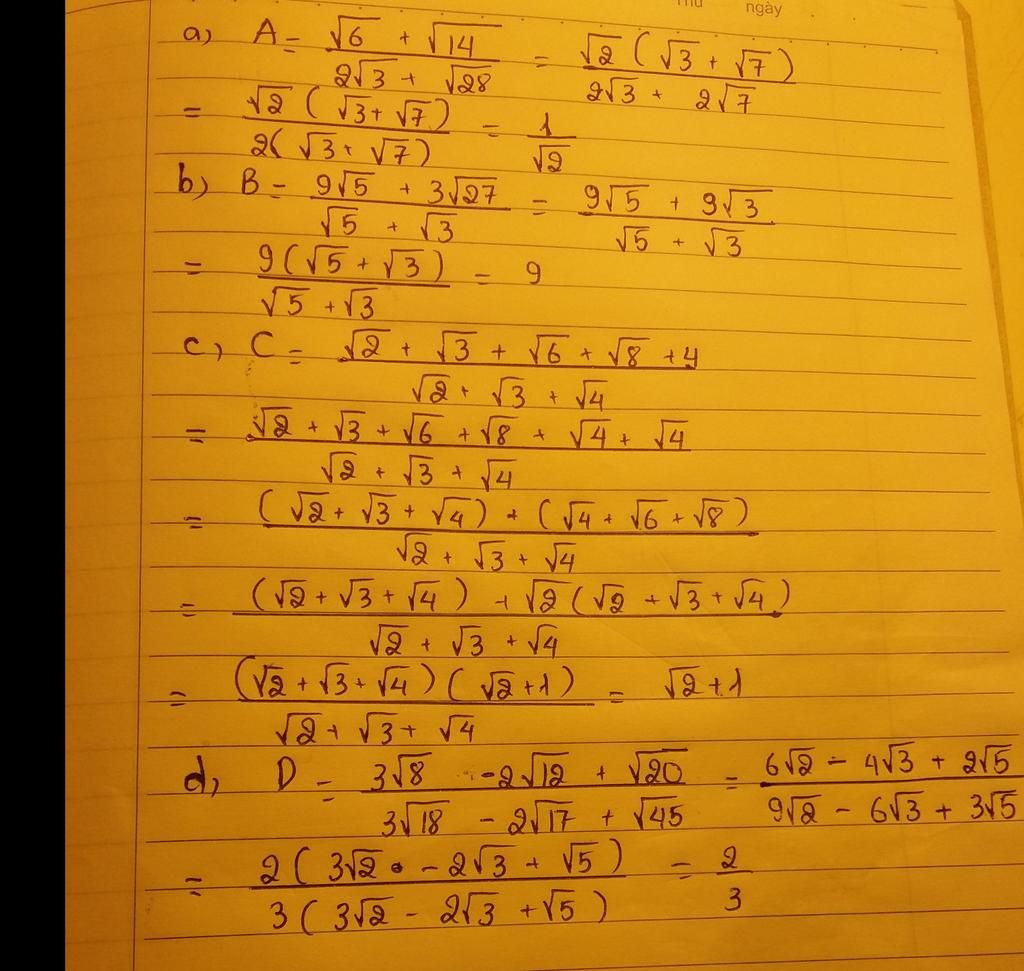 Thứ ngày
a, A = (√6 + √14)/(2√3 + √28) = (√2(√3 + √7))/(2√3 + 2√7)
= (√2(√3 + √7))/(2(√3 + √7)) = 1/√2
b, B = (9√5 + 3√27)/(√5 + √3) = (9√5 + 9√3)/(√5 + √3)
= (9(√5 + √3))/(√5 + √3) = 9
c, C = (√2 + √3 + √6 + √8 + 4)/(√2 + √3 + √4)
= (√2 + √3 + √6 + √8 + √4 + √4)/(√2 + √3 + √4)
= ((√2 + √3 + √4) + (√4 + √6 + √8))/(√2 + √3 + √4)
= ((√2 + √3 + √4) + √2(√2 + √3 + √4))/(√2 + √3 + √4)
= ((√2 + √3 + √4)(√2 + 1))/(√2 + √3 + √4) = √2 + 1
d, D = (3√8 - 2√12 + √20)/(3√18 - 2√17 + √45) = (6√2 - 4√3 + 2√5)/(9√2 - 6√3 + 3√5)
= (2(3√2 - 2√3 + √5))/(3(3√2 - 2√3 + √5)) = 2/3